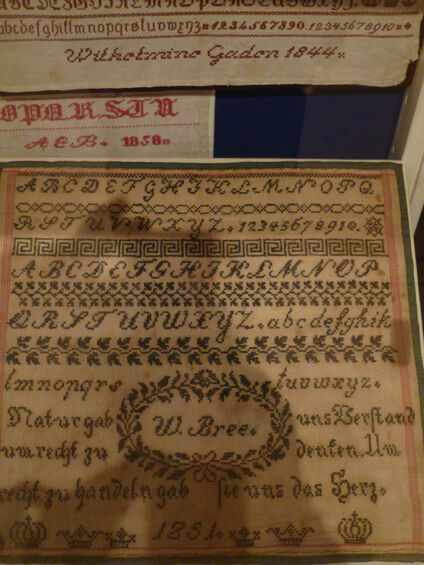 1234567890.12345678910
Wilhelmine Gaden 1844.
OPQRSTU
A&B. 1858
ABCDEFGHIKLMNOPQ
RSTUVWXYZ.12345678910.
ABCDEFGHIKLMNOP
QRSTUVWXYZ.abcdefghik
lmnopqrs tuvwxyz.
Natur gab uns Verstand
W. Bree.
um recht zu denken. Um
recht zu handeln gab sie uns das Herz.
1851.